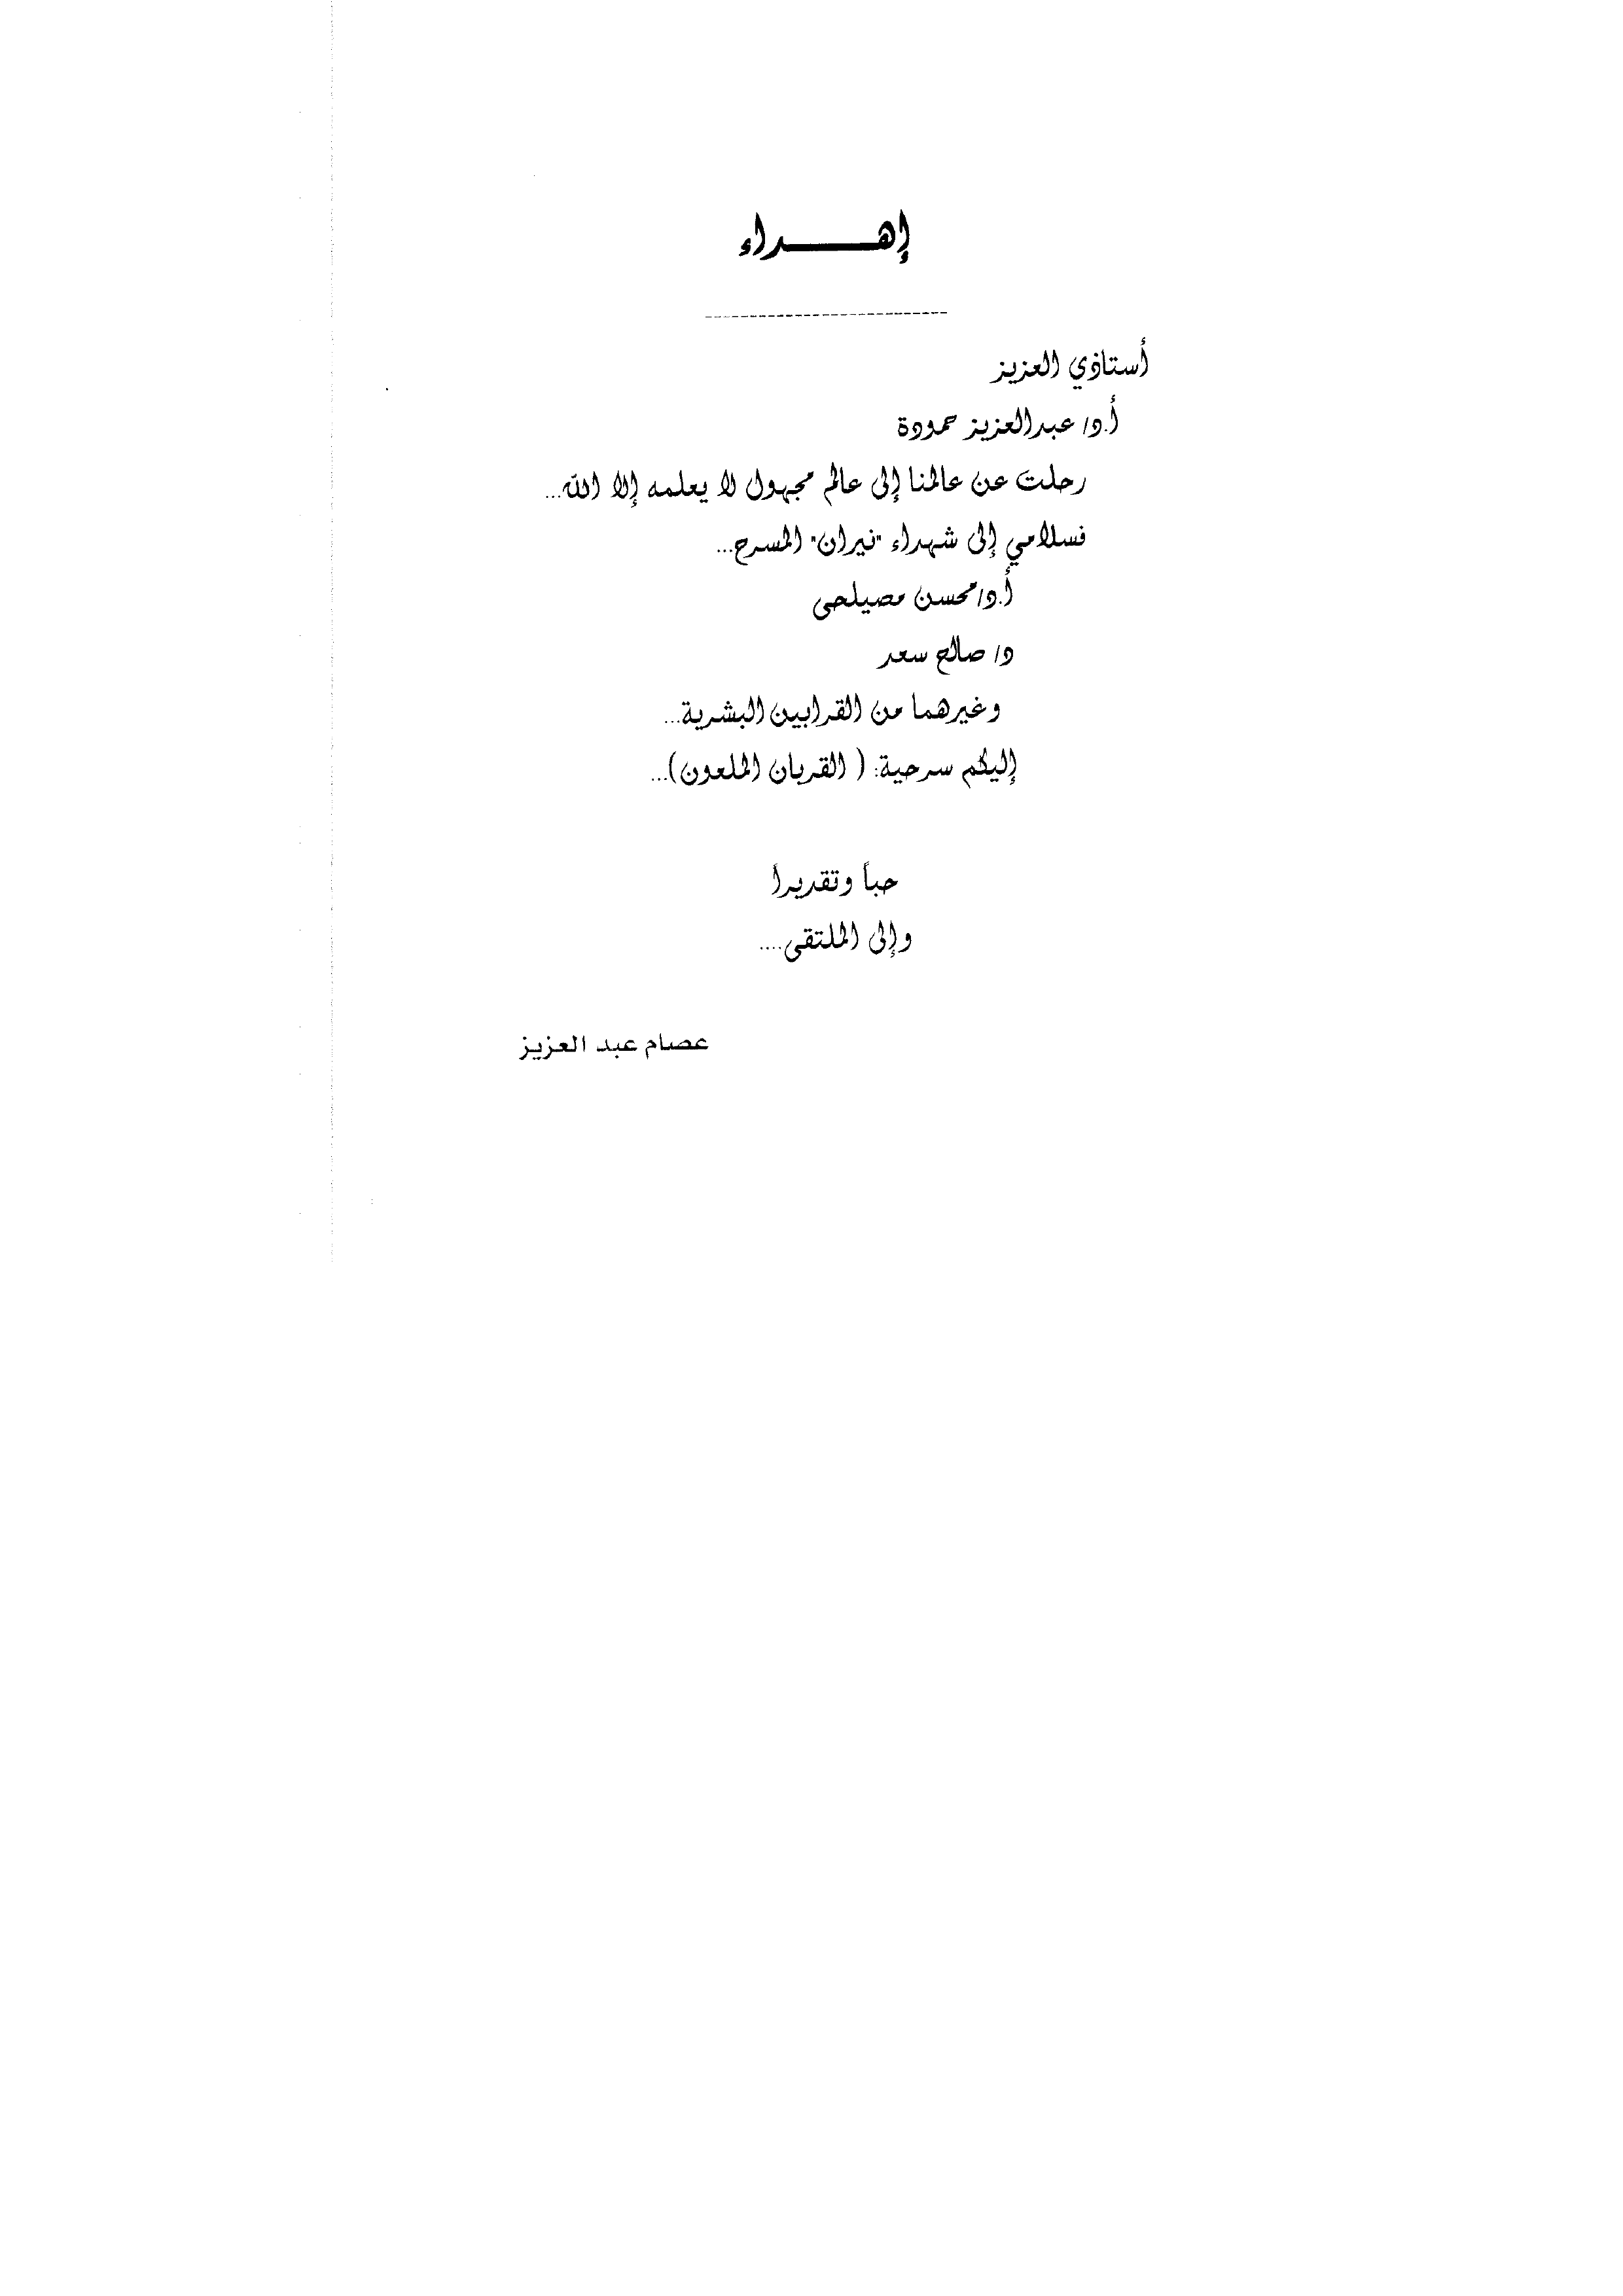 إهـــــداء
أستاذي العزيز
أ.د/ عبدالعزيز حمودة
رحلت عن عالمنا إلى عالم مجهول لا يعلمه إلا الله...
فسلامي إلى شهداء "نيران" المسرح...
أ.د/محسن مصيلحى
د/ صالح سعد
وغيرهما من القرابين البشرية...
إليكم سرحية: ( القربان الملعون)...
حباً وتقديراً
وإلى الملتقى....
عصام عبد العزيز